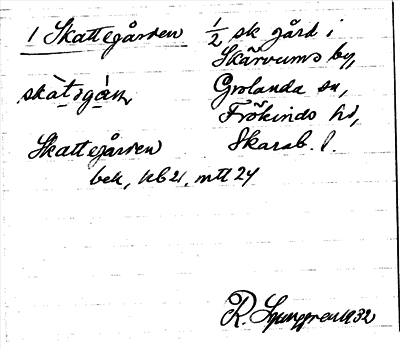 1 Skattegården
1/2 sk gård i
Skärvums by,
Grolanda sn,
Frökinds hd,
Skarab. l.
skàt⸱gàṇ
Skattegården
bek, kb 21, mtt 24
R. Ljunggren 1932